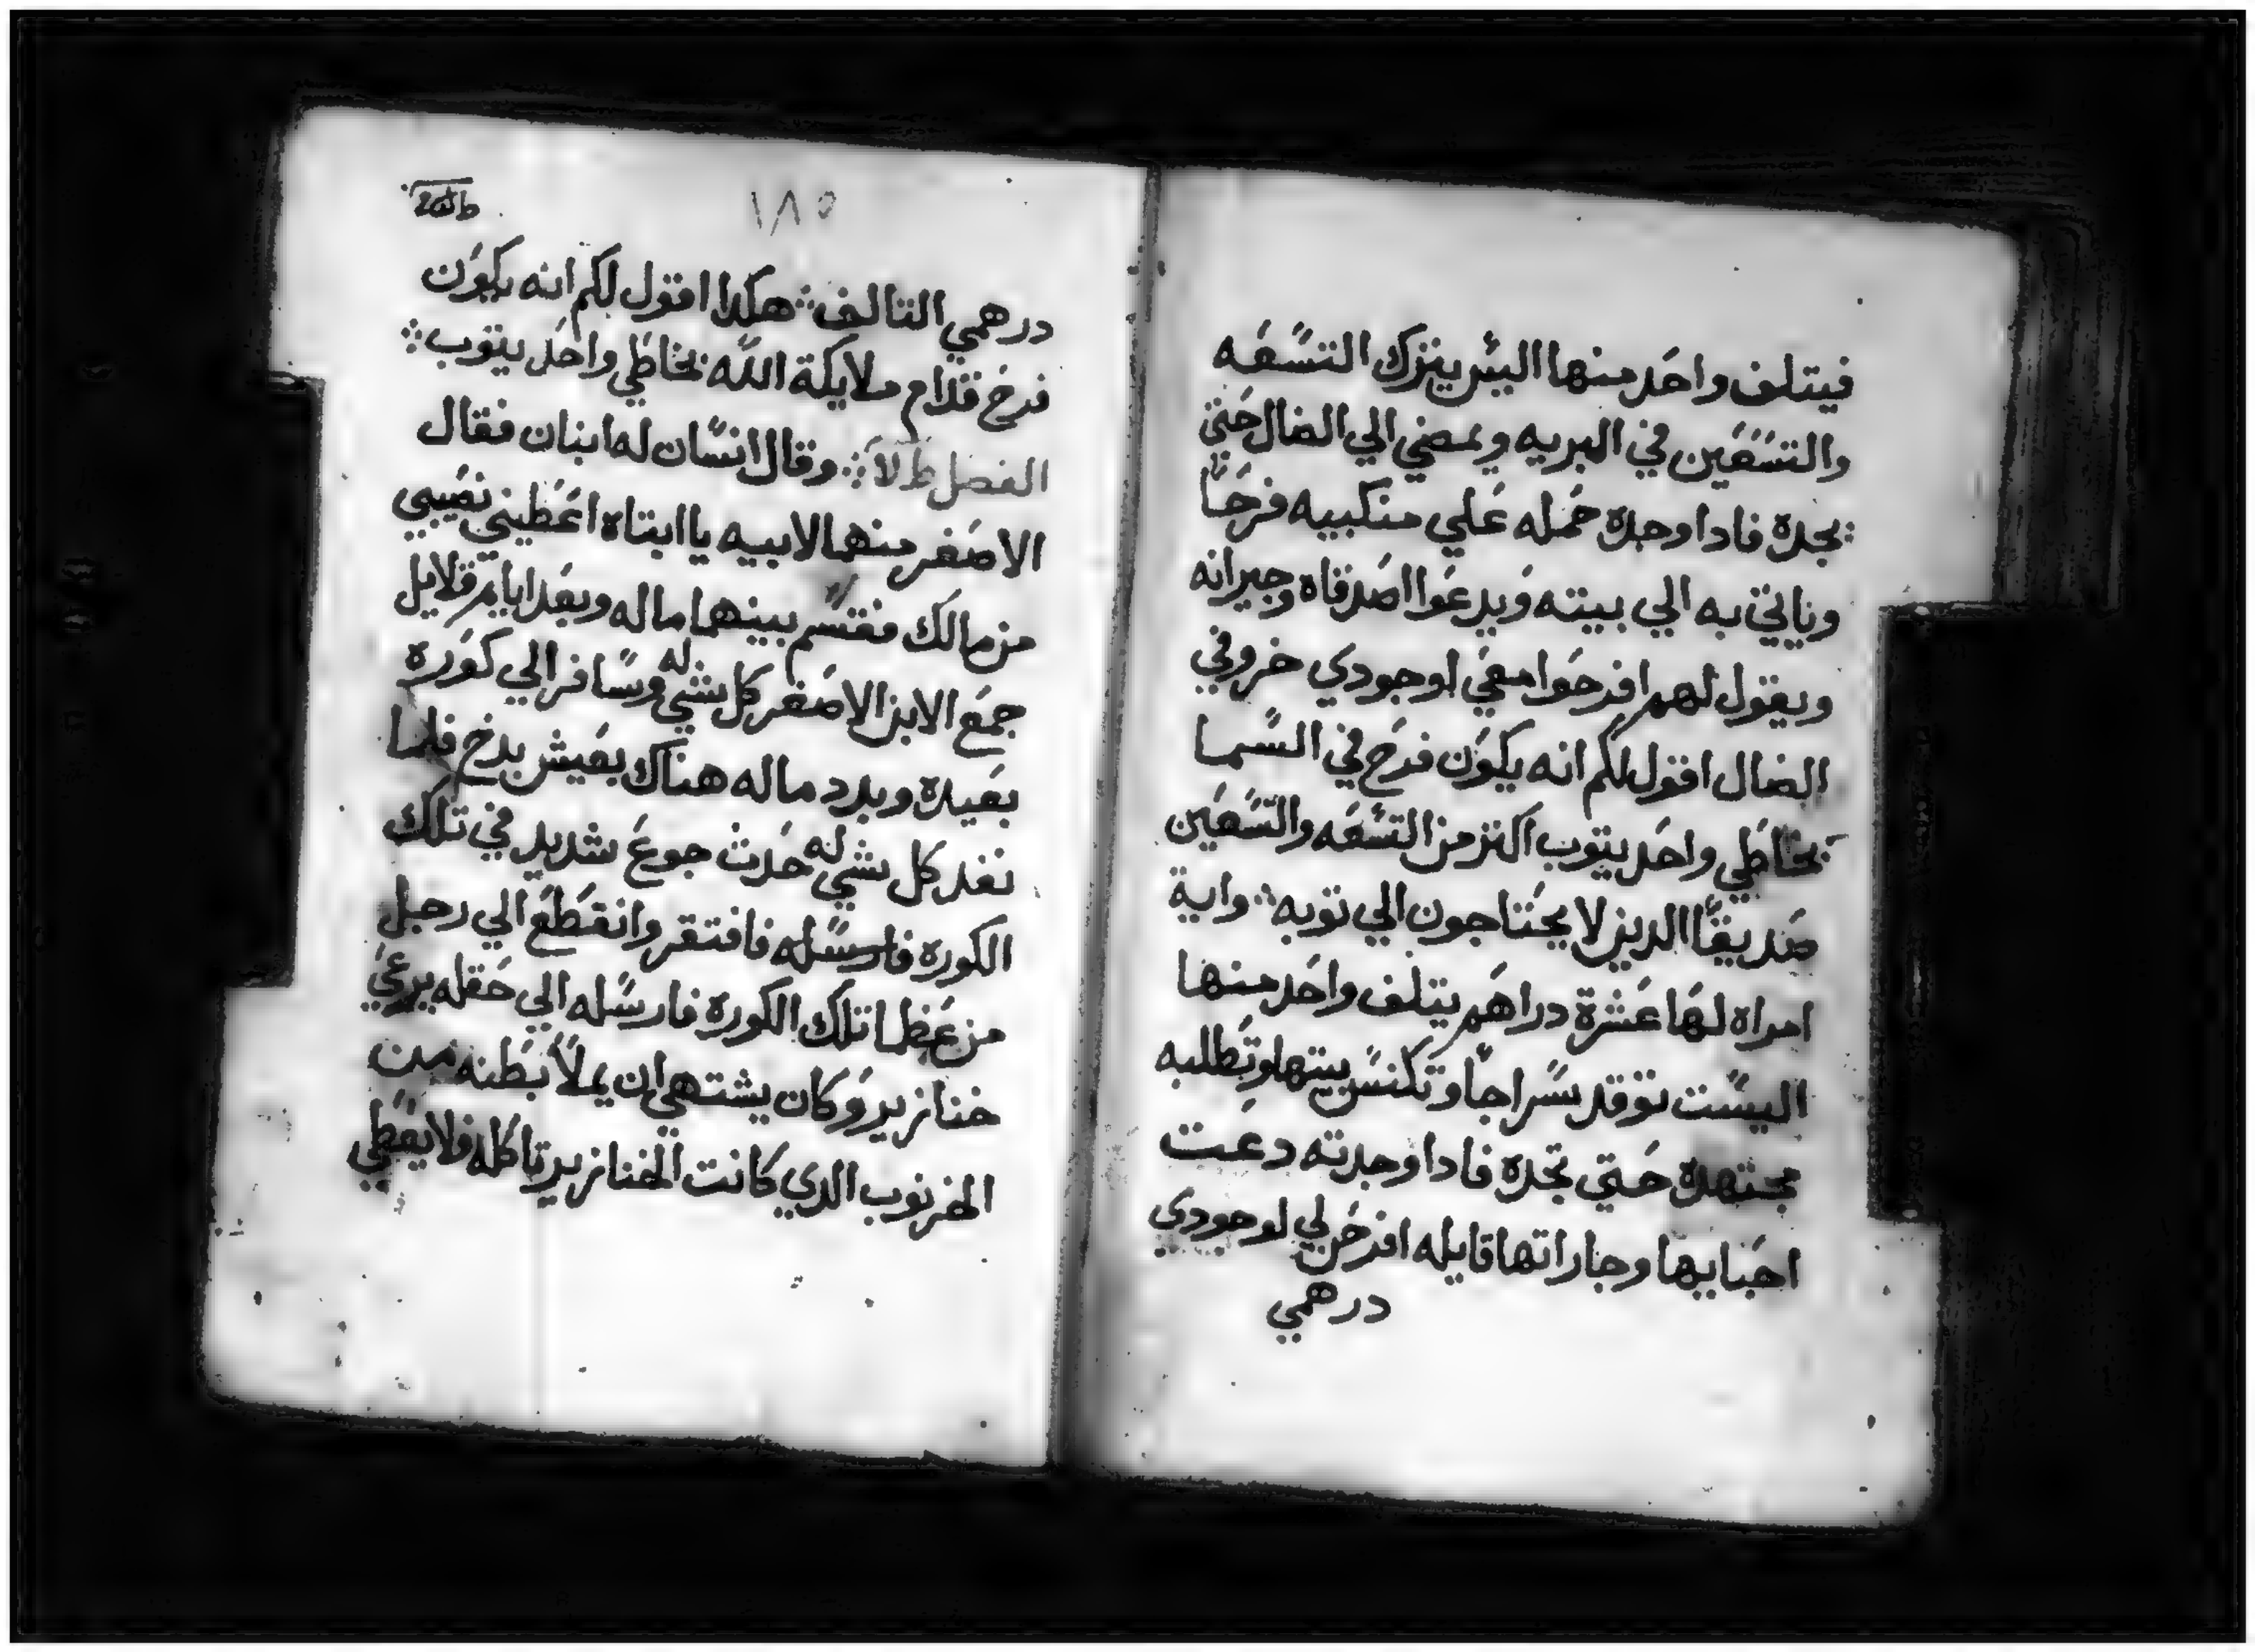 فيتلف واحد منها اليس يترك التسعه
والتسعين في البريه ويمضي الي الضال حتي
يجده فادا وجده حمله علي منكبيه فرحًا
وياتي به الي بيته ويدعوا اصدقاه وجيرانه
ويقول لهم افرحوا معي لوجودي خروفي
الضال اقول لكم انه يكون فرح في السما
بخاطي واحد يتوب اكتر من التسعه والتسعين
صديقًا الدين لا يحتاجون الي توبه ∴ واية
امراه لها عشرة دراهم يتلف واحد منها
اليست توقد سراجًا وتكنس بيتها وتطلبه
مجتهدة حتي تجده فادا وجدته دعت
احبابها وجاراتها قايله افرحن لي لوجودي
درهمي
١٨٥
درهمي التالف ∴ هكدا اقول لكم انه يكون
فرح قدام ملايكة الله بخاطي واحد يتوب ∴
الفصل ∴ وقال انسان له ابنان فقال
الاصغر منهما لابيه يا ابتاه اعطيني نصيبي
من مالك فقسم بينهما ماله وبعد ايام قلايل
جمع الابن الاصغر كل شي له وسافر الي كوره
بعيدة وبدد ماله هناك بعيش بدخ فلما
نفد كل شي له حدث جوع شديد في تلك
الكوره فافتقر وانقطع الي رجل
من عظما تلك الكوره فارسله الي حقله يرعي
خنازير وكان يشتهي ان يملأ بطنه من
الخرنوب الدي كانت الخنازير تاكله فلا يعطي